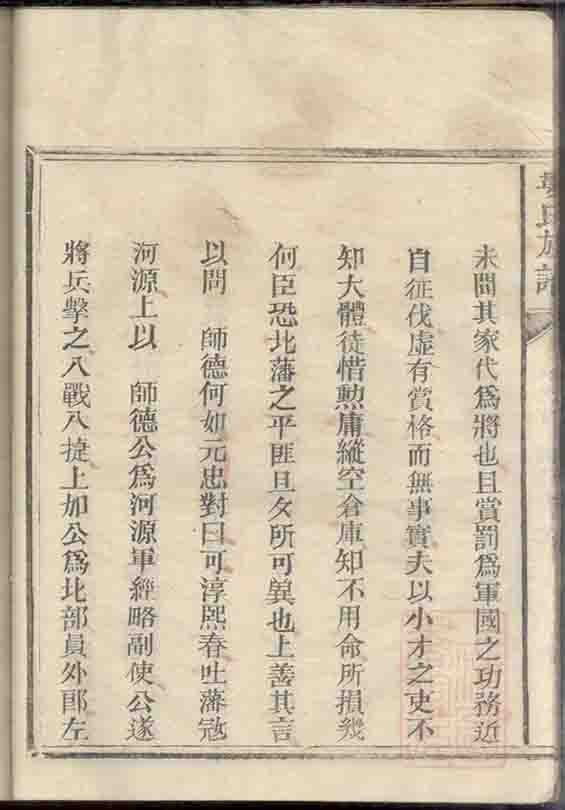 氏族譜
未聞其家代爲將也且賞罰爲軍國之功務近
自征伐虛有賞格而無事實夫以小才之吏不
知大體徒惜勲庸縱空倉庫知不用命所損幾
何臣恐北藩之平匪旦夕所可兾也上善其言
以問 師德何如元忠對曰可淳熙春吐藩寇
河源上以 師德公爲河源軍經略副使公遂
將兵擊之八戰八捷上加公爲北部員外郎左